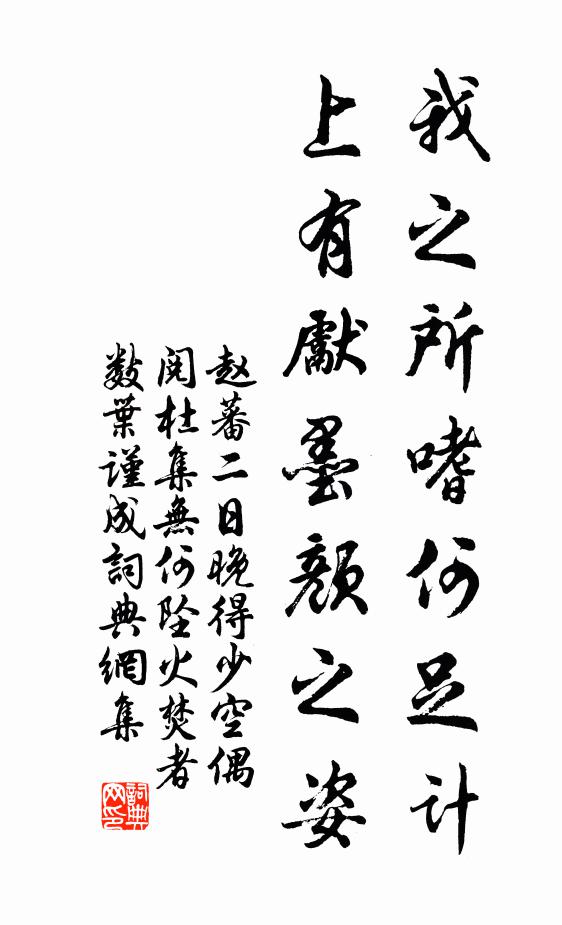 我之所嗜何足计
上有獻墨颜之姿
赵蕃二日晚得少空偶
阅杜集無何坠火焚者
数葉谨成詞典網集
詞典网印